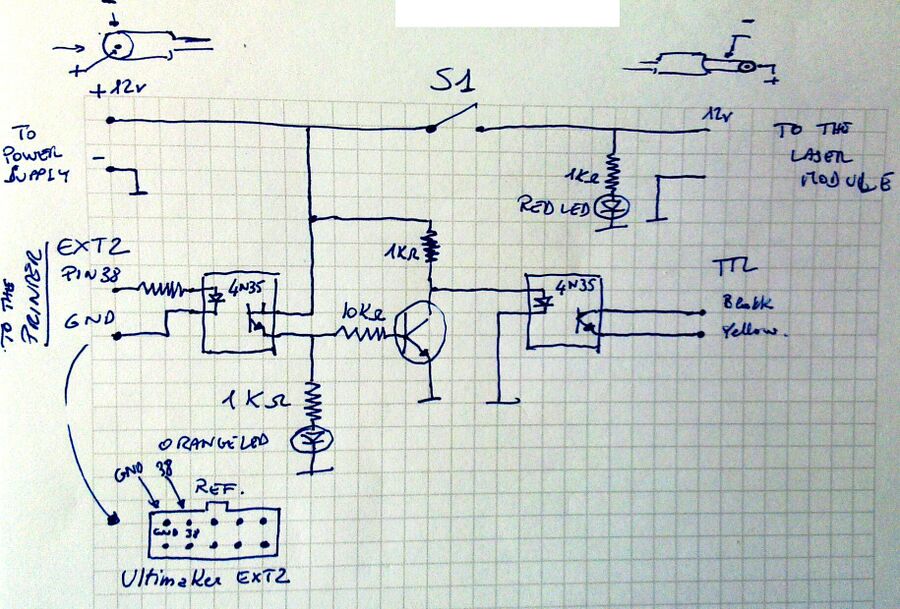 -
+
+12v
S1
-
+
12v
TO
POWER
SUPPLY
-
TO THE
LASER
MODULE
1KΩ
RED LED
TO THE
PRINTER
EXT2
PIN 38
GND
4N35
1KΩ
10KΩ
4N35
TTL
Black
Yellow.
1KΩ
ORANGE LED
GND 38
REF.
GND 38
Ultimaker EXT2